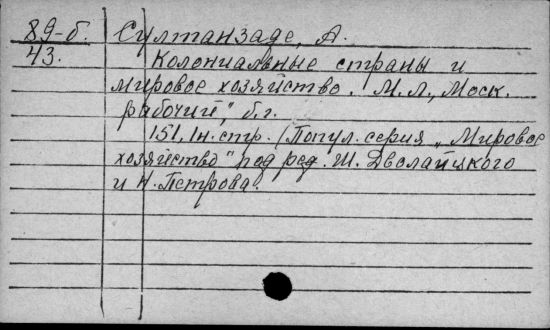 89-б. Султанзаде, А.
43. Колониальные страны и
мировое хозяйство. М.Л., Моск.
рабочий", б.г.
151, 1н.стр. (Попул. серия „Мировое
хозяйство" под ред. Ш. Дволайцкого
и Н. Петрова.